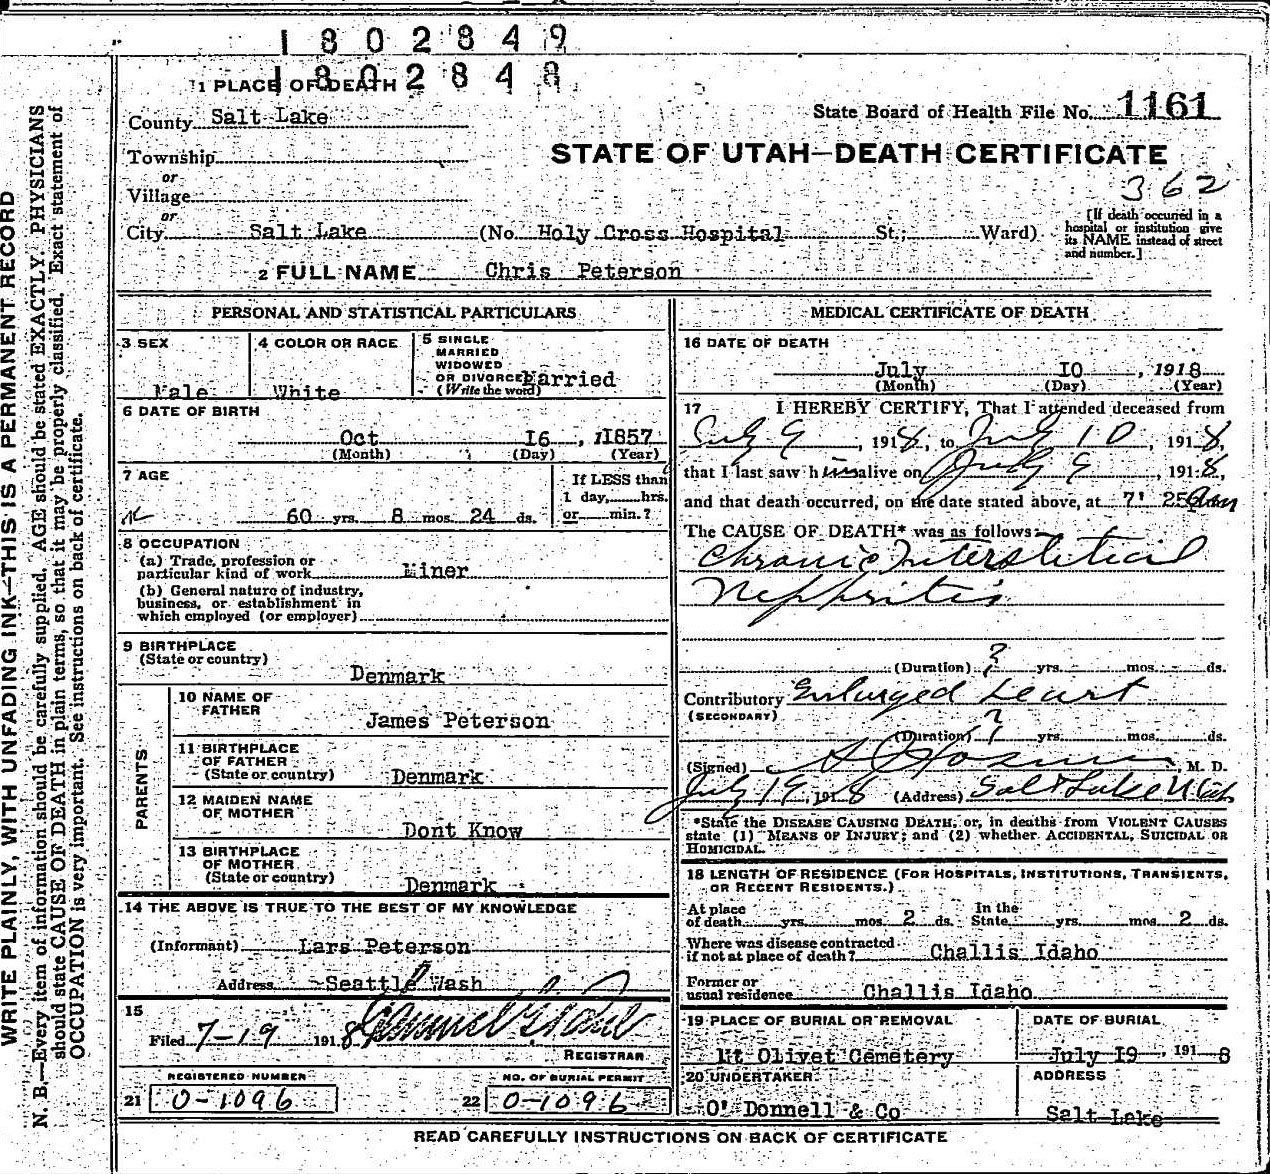 1802849
1802848
1 PLACE OF DEATH
State Board of Health File No. 1161
County Salt Lake
STATE OF UTAH—DEATH CERTIFICATE
Township
or
362
Village
or
City Salt Lake (No Holy Cross Hospital St.; Ward)
[If death occurred in a hospital or institution give its NAME instead of street and number.]
2 FULL NAME Chris Peterson
PERSONAL AND STATISTICAL PARTICULARS
3 SEX Male
4 COLOR OR RACE White
5 SINGLE
MARRIED
WIDOWED
OR DIVORCED Married
(Write the word)
6 DATE OF BIRTH
Oct 16, 1857
(Month) (Day) (Year)
7 AGE
60 yrs. 8 mos. 24 ds.
If LESS than
1 day, hrs.
or min.?
8 OCCUPATION
(a) Trade, profession or
particular kind of work Miner
(b) General nature of industry,
business, or establishment in
which employed (or employer)
9 BIRTHPLACE
(State or country)
Denmark
PARENTS
10 NAME OF
FATHER
James Peterson
11 BIRTHPLACE
OF FATHER
(State or country) Denmark
12 MAIDEN NAME
OF MOTHER
Dont Know
13 BIRTHPLACE
OF MOTHER
(State or country)
Denmark
14 THE ABOVE IS TRUE TO THE BEST OF MY KNOWLEDGE
(Informant) Lars Peterson
Address Seattle Wash
15
Filed 7-19 1918
REGISTRAR
REGISTERED NUMBER
21 0-1096
NO. OF BURIAL PERMIT
22 0-1096
MEDICAL CERTIFICATE OF DEATH
16 DATE OF DEATH
July 10, 1918
(Month) (Day) (Year)
17 I HEREBY CERTIFY, That I attended deceased from
July 9, 1918, to July 10, 1918,
that I last saw him alive on July 9, 1918,
and that death occurred, on the date stated above, at 7' 25 am
The CAUSE OF DEATH* was as follows:
Chronic Interstitial
Nephritis
(Duration) ? yrs. mos. ds.
Contributory Enlarged heart
(SECONDARY)
(Duration) ? yrs. mos. ds.
(Signed) M. D.
July 19, 1918 (Address) Salt Lake Utah
*State the DISEASE CAUSING DEATH, or, in deaths from VIOLENT CAUSES
state (1) MEANS OF INJURY; and (2) whether ACCIDENTAL, SUICIDAL OR
HOMICIDAL.
18 LENGTH OF RESIDENCE (FOR HOSPITALS, INSTITUTIONS, TRANSIENTS,
OR RECENT RESIDENTS.)
At place of death yrs. mos. 2 ds. In the State yrs. mos. 2 ds.
Where was disease contracted
if not at place of death? Challis Idaho
Former or
usual residence Challis Idaho
19 PLACE OF BURIAL OR REMOVAL
Mt Olivet Cemetery
DATE OF BURIAL
July 19, 1918
20 UNDERTAKER
O' Donnell & Co
ADDRESS
Salt Lake
READ CAREFULLY INSTRUCTIONS ON BACK OF CERTIFICATE
WRITE PLAINLY, WITH UNFADING INK—THIS IS A PERMANENT RECORD
N. B.—Every item of information should be carefully supplied. AGE should be stated EXACTLY. PHYSICIANS
should state CAUSE OF DEATH in plain terms, so that it may be properly classified. Exact statement of
OCCUPATION is very important. See instructions on back of certificate.